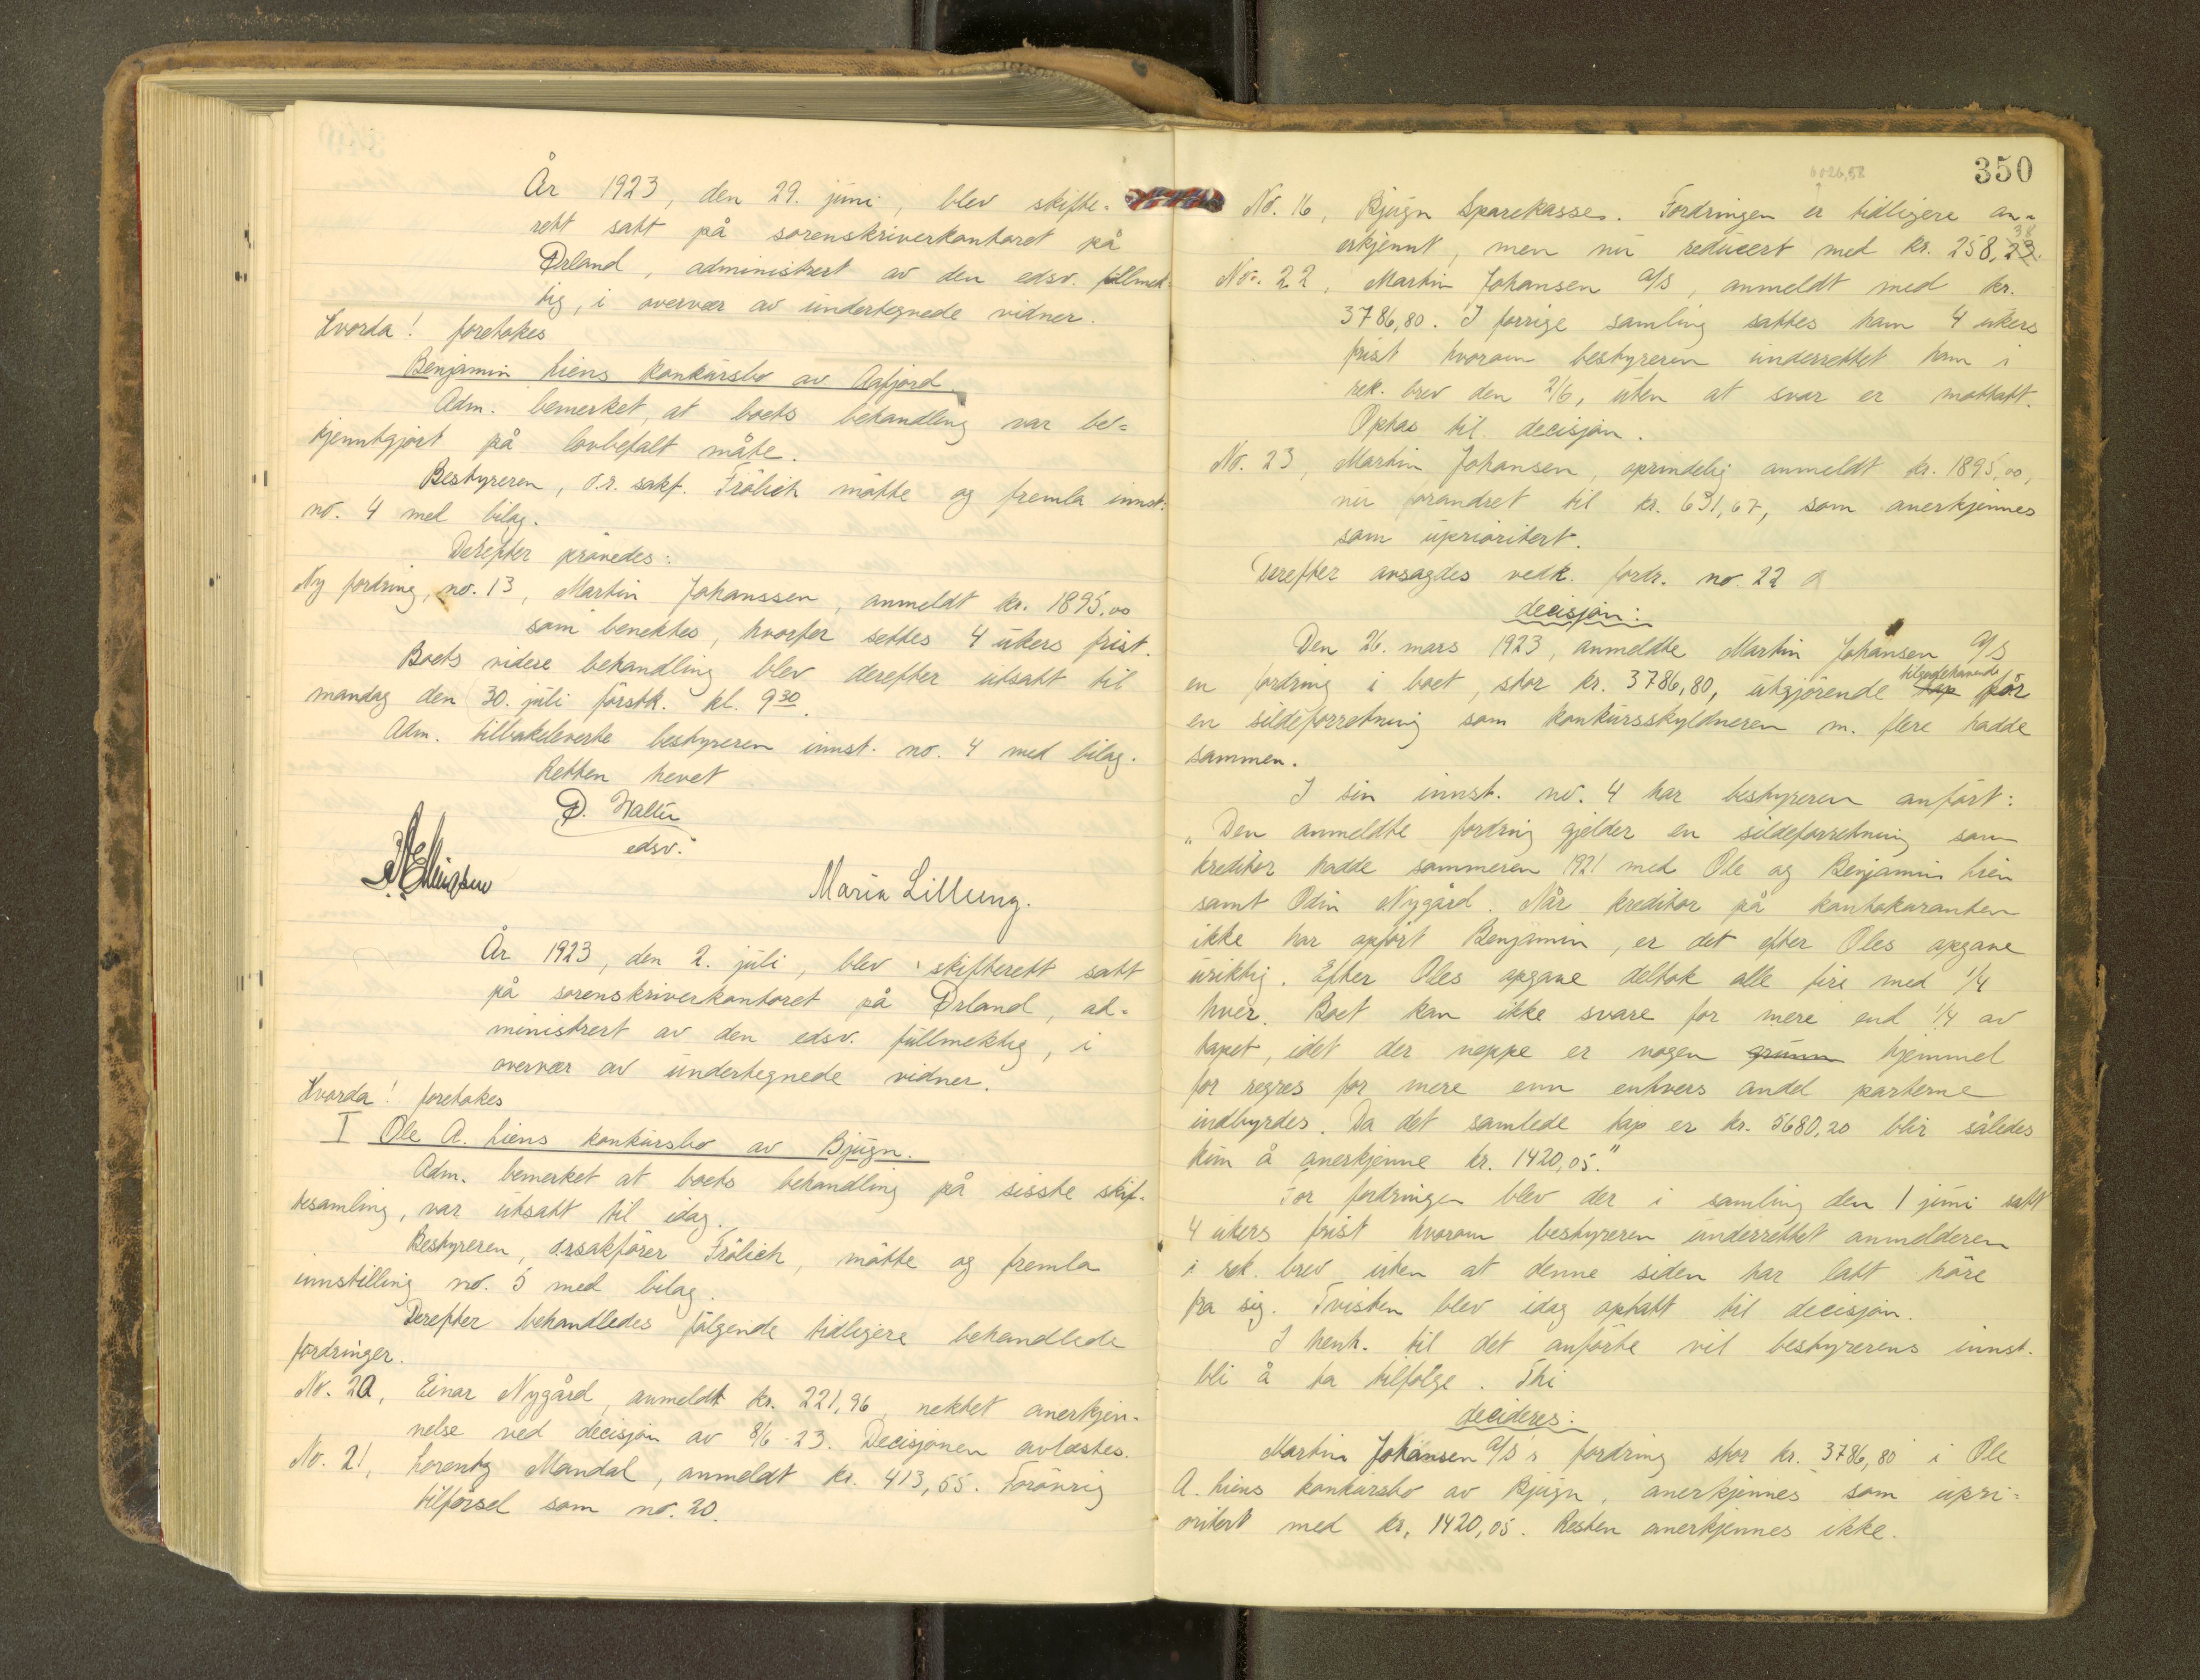 År 1923, den 29. juni, blev skifte=
rett satt på sorenskriverkontoret på
Ørland, administrert av den edsv. fullmek-
tig, i overvær av undertegnede vidner.
Hvorda! foretokes
Benjamin Liens konkursbo av Aafjord.
Adm. bemerket, at boets behandling var be=
kjenntgjort på lovbefalt måte.
Bestyreren, o.r. sakf. Frölich mötte og fremla innst.
no. 4 med bilag.
Derefter prövedes:
Ny fordring, no. 13, Martin Johanssen, anmeldt kr. 1895.00
som benektes, hvorfor settes 4 ukers frist.
Boets videre behandling blev derefter utsatt til
mandag den 30. juli förstk. kl. 9 30.
Adm. tilbakeleverte bestyreren innst. no. 4 med bilag.
Retten hevet
Ø. Walter
edsv.
Maria Lillung.
År 1923, den 2. juli, blev skifterett satt
på sorenskriverkontoret på Ørland, ad-
ministrert av den edsv. fullmektig, i
overvær av undertegnede vidner.
Hvorda! foretokes
I Ole A. Liens konkursbo av Bjugn.
Adm. bemerket at boets behandling på sisste skif-
tesamling, var utsatt til idag.
Bestyreren, o.r.sakförer Frölich, mötte og fremla
innstilling no. 5 med bilag.
Derefter behandledes fölgende tidligere behandlede
fordringer.
No. 20, Einar Nygård, anmeldt kr. 221,96, nektet anerkjen-
nelse ved decisjon av 8/6-23. Decisjonen avlæstes.
No. 21, Lorentz Mandal, anmeldt kr. 413,55. Forövrig
tilförsel som no. 20.
350
6026,58
No. 16, Bjugn Sparekasse. Fordringen er tidligere an-
erkjennt, men nu reducert med kr. 258,23.
38
No. 22, Martin Johansen A/S, anmeldt med kr.
3786,80. I forrige samling sattes ham 4 ukers
frist hvorom bestyreren underrettet ham i
rek. brev den 2/6, uten at svar er mottatt.
Optas til decisjon.
No. 23, Martin Johansen, oprindelig anmeldt kr. 1895,00,
nu forandret til kr. 631,67, som anerkjennes
som uprioritert.
Derefter avsagdes vedk. fordr. no. 22
decisjon:
Den 26. mars 1923, anmeldte Martin Johansen A/S
en fordring i boet, stor kr. 3786,80, utgjörende tap tilgodehavende for
en sildeforretning som konkursskyldneren m. flere hadde
sammen.
I sin innst. no. 4 har bestyreren anfört:
"Den anmeldte fordring gjelder en sildeforretning som
kreditor hadde sommeren 1921 med Ole og Benjamin Lien
samt Odin Nygård. Når kreditor på kontokuranten
ikke har opfört Benjamin, er det efter Oles opgave
uriktig. Efter Oles opgave deltok alle fire med 1/4
hver. Boet kan ikke svare for mere end 1/4 av
tapet, idet der neppe er nogen grunn hjemmel
for regres for mere enn enhvers andel parterne
indbyrdes. Da det samlede tap er kr. 5680,20 blir således
kun å anerkjenne kr. 1420,05."
For fordringen blev der i samling den 1 juni satt
4 ukers frist hvorom bestyreren underrettet anmelderen
i rek. brev uten at denne siden har latt höre
fra sig. Tvisten blev idag optatt til decisjon.
I henh. til det anförte vil bestyrerens innst.
bli å ta tilfölge. Thi
decideres:
Martin Johansen A/S's fordring stor kr. 3786,80 i Ole
A. Liens konkursbo av Bjugn, anerkjennes som upri=
oritert med kr. 1420,05. Resten anerkjennes ikke.